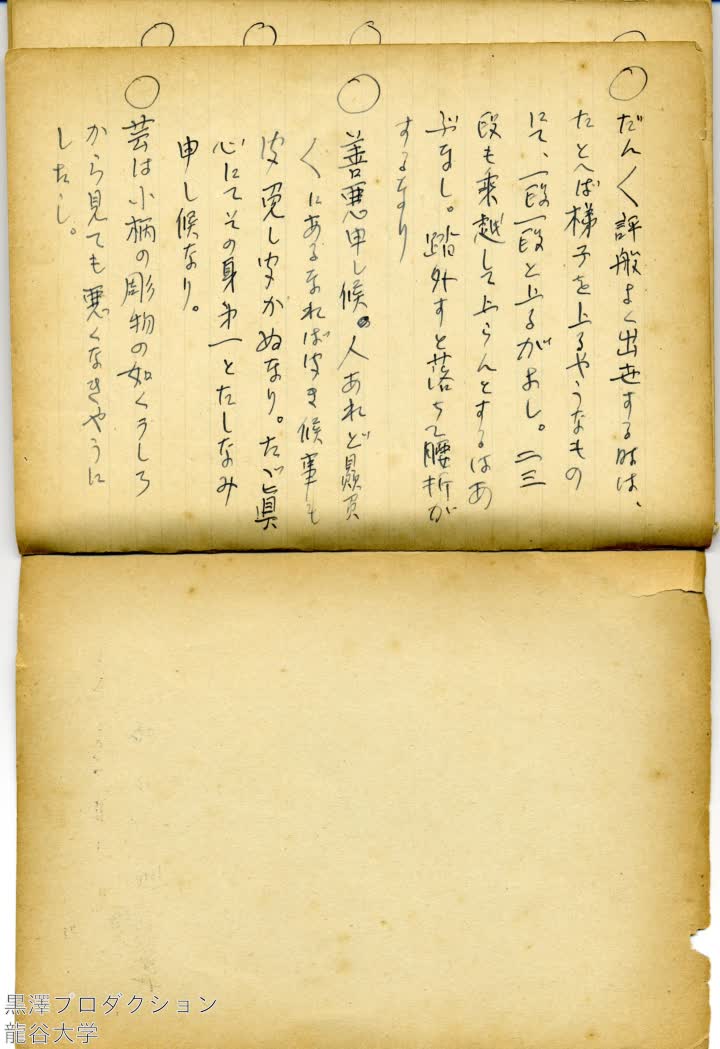 ○ だん〱評般よく出世する時は、
たとへば様子を上るやうなもの
にて、一段一段と上るがよし。二三
段も乗越して上らんとするはあ
ぶなし。踏外すと落ちて腰折が
するなり
○ 善悪申し候。人あれど贔負
〱にあるなれば
心にてその身第一とたしなみ
申し候なり。
○ 芸は小柄の彫物の如くうしろ
から見ても悪くなきやうに
したし。
黒澤プロダクション
龍谷大学